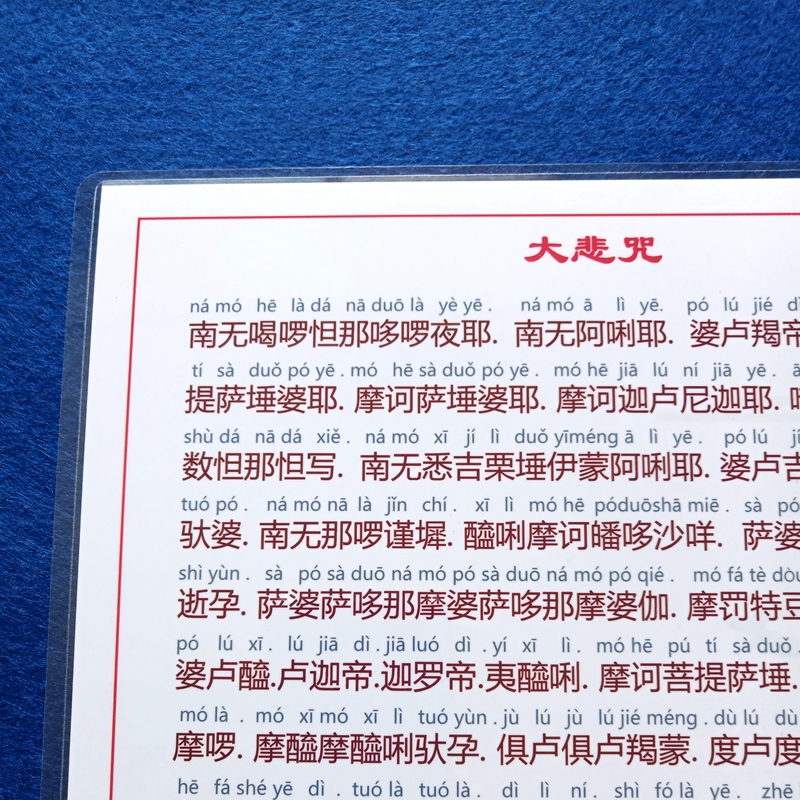 大悲咒
ná mó hē là dá nā duō là yè yē. ná mó ā lì yē. pó lú jié
南无喝啰怛那哆啰夜耶. 南无阿唎耶. 婆卢羯帝
tí sà duǒ pó yē. mó hē sà duǒ pó yē. mó hē jiā lú ní jiā yē.
提萨埵婆耶. 摩诃萨埵婆耶. 摩诃迦卢尼迦耶.
shù dá nā dá xiě. ná mó xī jí lì duǒ yī méng ā lì yē. pó lú
数怛那怛写. 南无悉吉栗埵伊蒙阿唎耶. 婆卢吉
tuó pó. ná mó nā là jǐn chí. xī lì mó hē pó duō shā miē. sà pó
驮婆. 南无那啰谨墀. 醯唎摩诃皤哆沙咩. 萨婆
shì yùn. sà pó sà duō ná mó pó sà duō ná mó pó qié. mó fá tè dòu
逝孕. 萨婆萨哆那摩婆萨哆那摩婆伽. 摩罚特豆
pó lú xī. lú jiā dì. jiā luó dì. yí xī lì. mó hē pú tí sà duǒ.
婆卢醯.卢迦帝.迦罗帝.夷醯唎. 摩诃菩提萨埵.
mó là. mó xī mó xī lì tuó yùn. jù lú jù lú jié méng. dù lú dù
摩啰. 摩醯摩醯唎驮孕. 俱卢俱卢羯蒙. 度卢度
hē fá shé yē dì. tuó là tuó là. dì lì ní. shì fó là yē. zhē